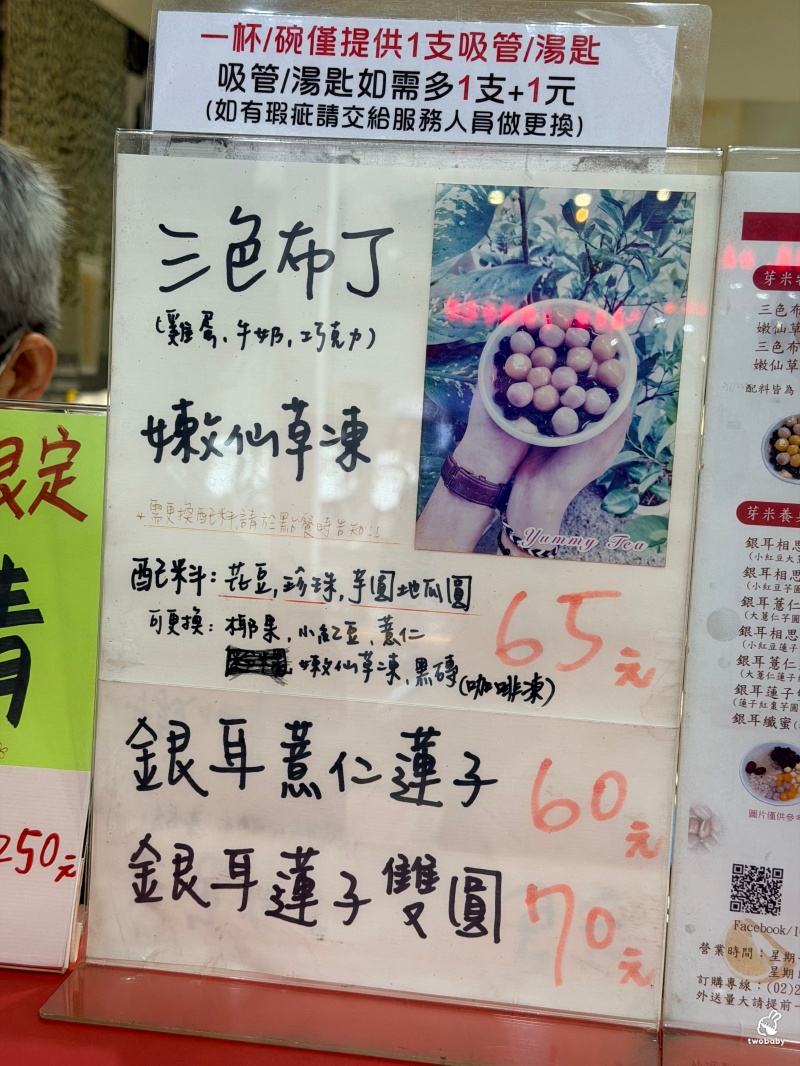 一杯/碗僅提供1支吸管/湯匙
吸管/湯匙如需多1支+1元
(如有瑕疵請交給服務人員做更換)
三色布丁
(雞蛋、牛奶、巧克力)
嫩仙草凍
需更換配料請於點餐時告知!!
Yummy Tea
配料:花豆,珍珠,芋圓地瓜圓
可更換:椰果,小紅豆、薏仁
嫩仙草凍,黑磚(咖啡凍)
65元
銀耳薏仁蓮子 60元
銀耳蓮子雙圓 70元
限定
250元
芽米
三色布
嫩仙草
三色布
嫩仙草
配料皆為
芽米養
銀耳相思
(小紅豆大薏
銀耳相思
(小紅豆芋圓
銀耳薏仁
(大薏仁芋圓
銀耳相思
(小紅豆蓮子
銀耳薏仁
(大薏仁蓮子
銀耳蓮子
(蓮子紅棗芋圓
銀耳纖蜜
圖片僅供參考
Facebook/I
營業時間:星期
星期
訂購專線:(02)2
外送量大請提前一
twobaby